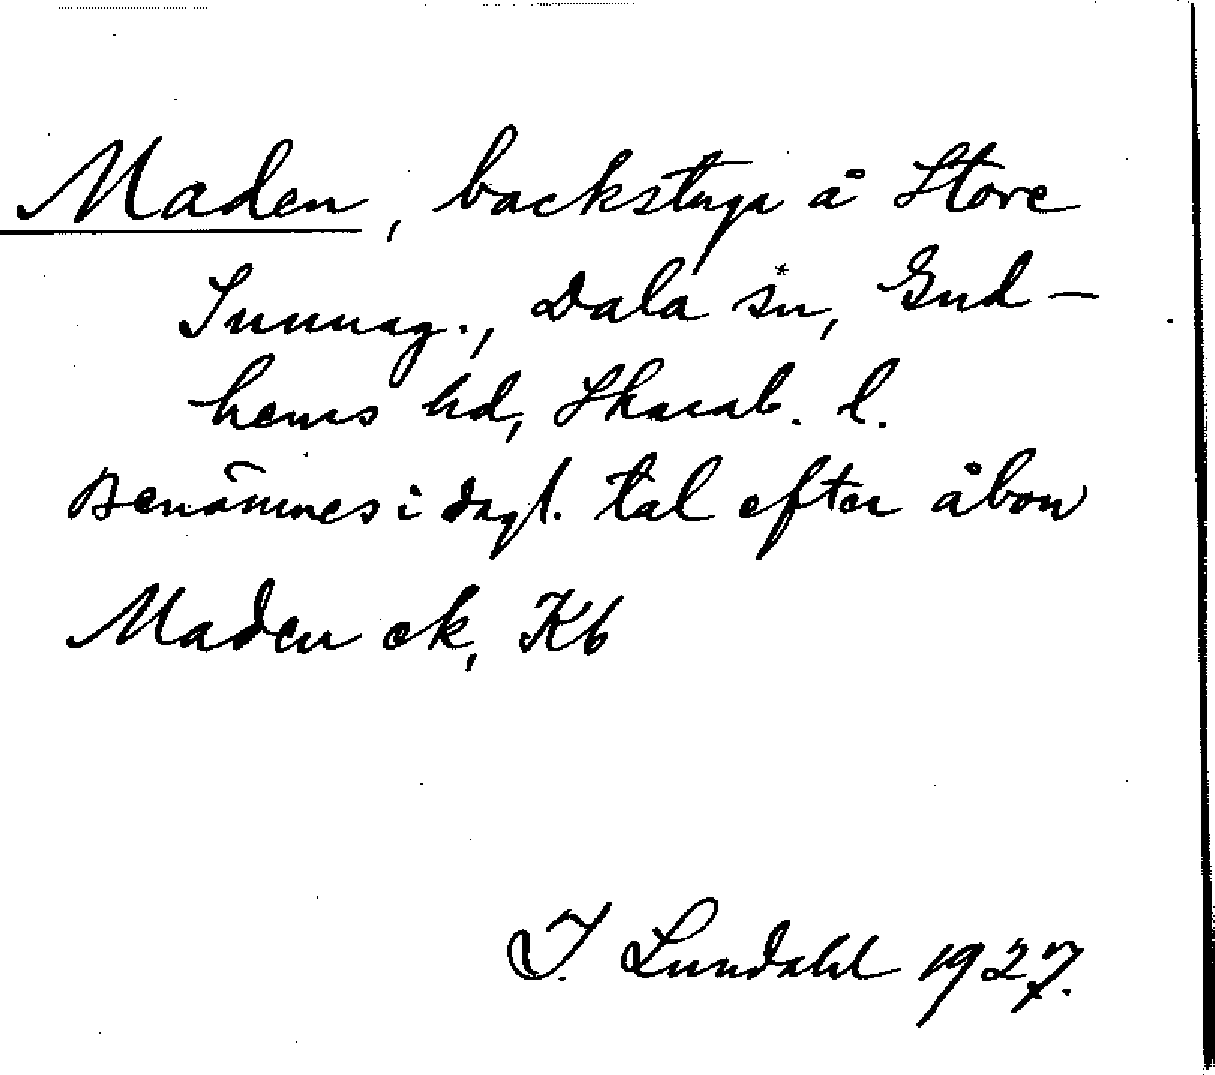 Maden, backstuga å Store
Sunnag., Dala sn, Gud-
hems hd, Skarab. l.
Benämnes i dagl. tal efter åbon
Maden ek, Kb
I. Lundahl 1927.